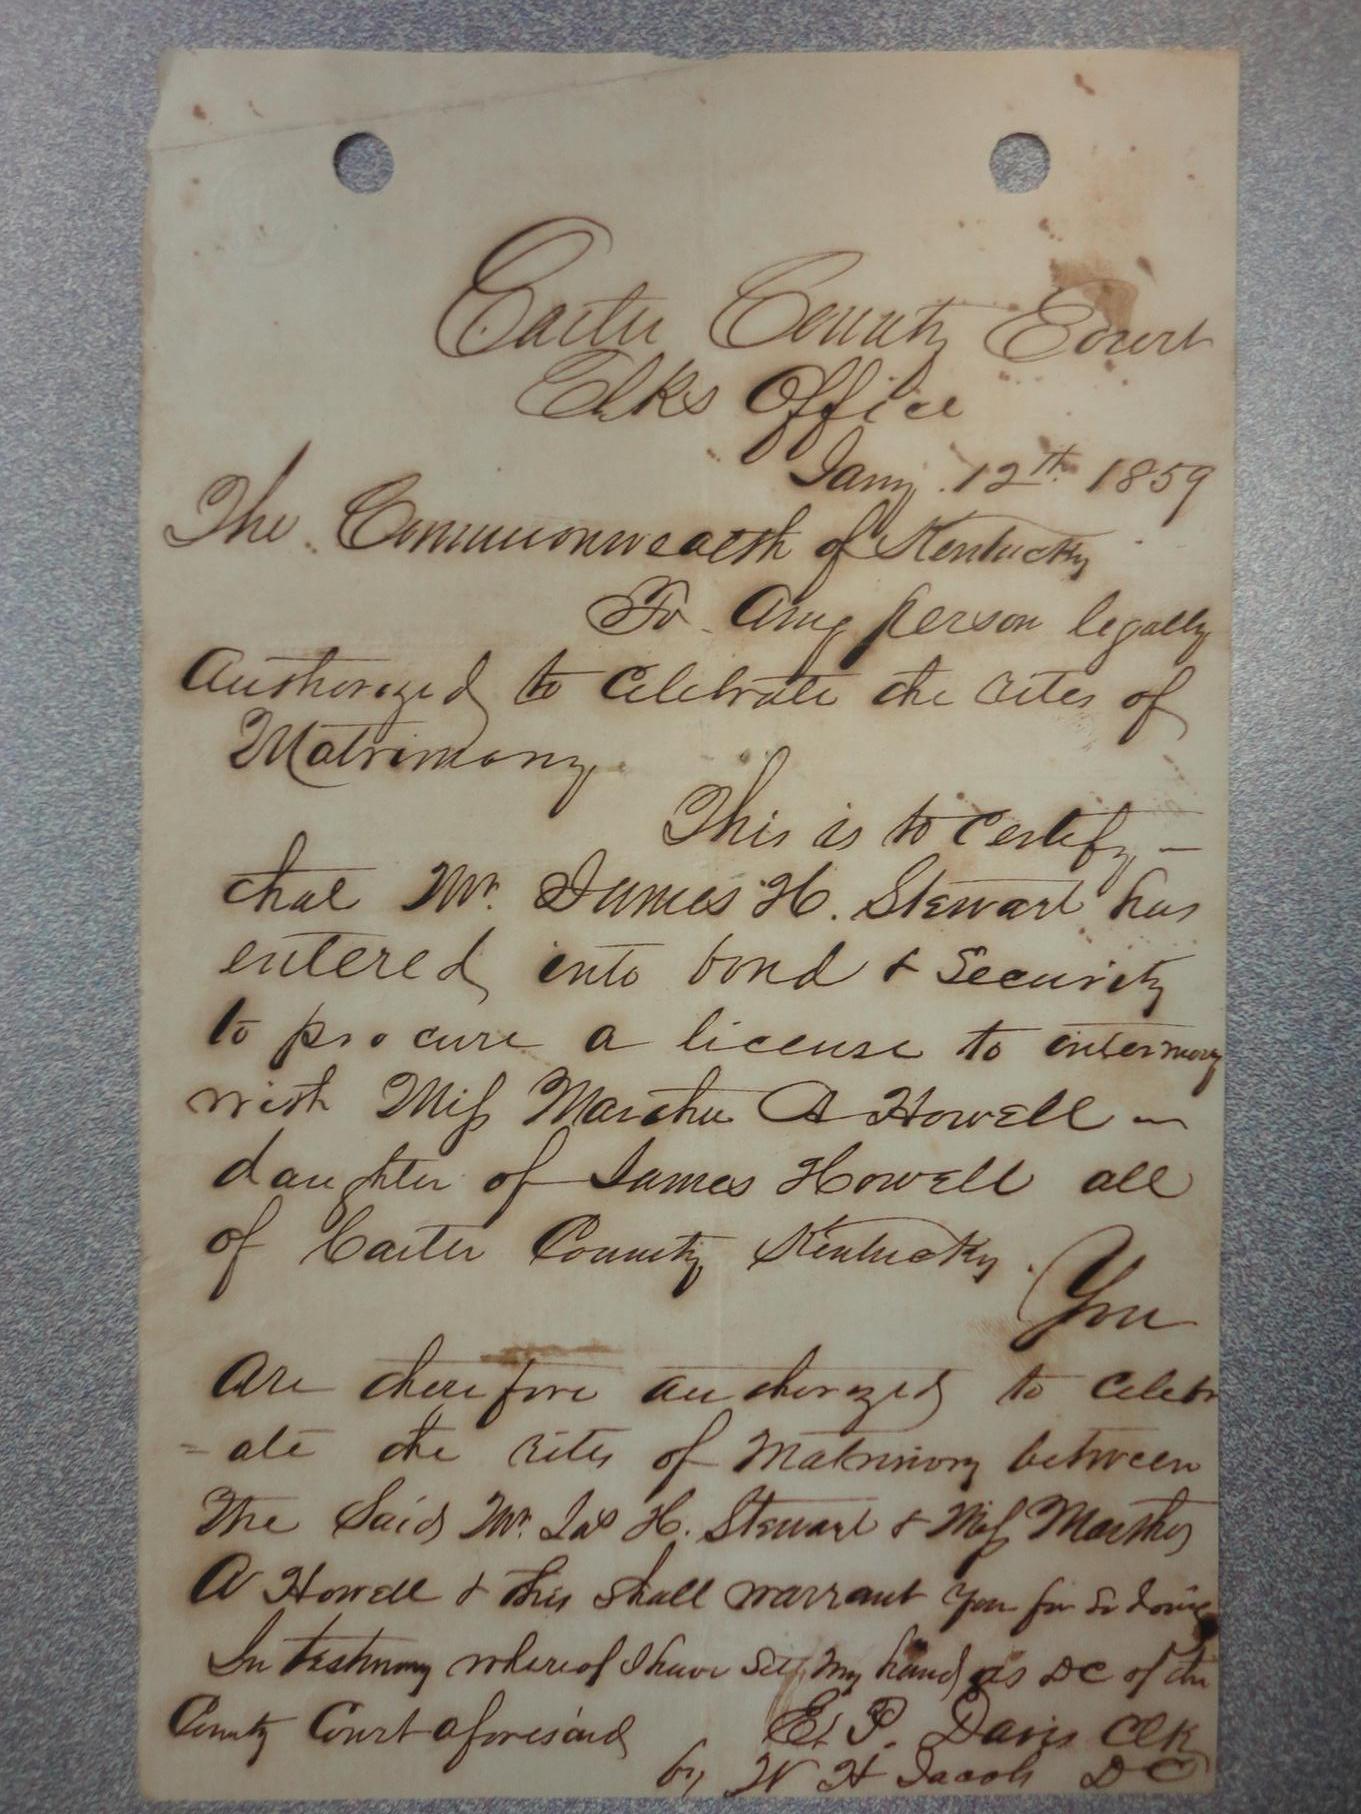 Carter County Court
Clks Office
Jany 12th 1859
The Commonwealth of Kentucky
To Any person legally
Authorized to Celebrate the rites of
Matrimony
This is to Certify —
that Mr. James H. Stewart has
entered into bond & Security
to procure a license to intermary
with Miss Martha A Howell —
daughter of James Howell all
of Carter County Kentucky.
You
are therefore authorized to Celebr
= ate the rites of Matrimony between
the Said Mr. Jas H. Stewart & Miss Martha
A Howell & this shall warrant you for so doing
In testimony whereof I have set my hand as DC of the
County Court aforesaid
E. P. Davis Clk
by W H Jacob DC